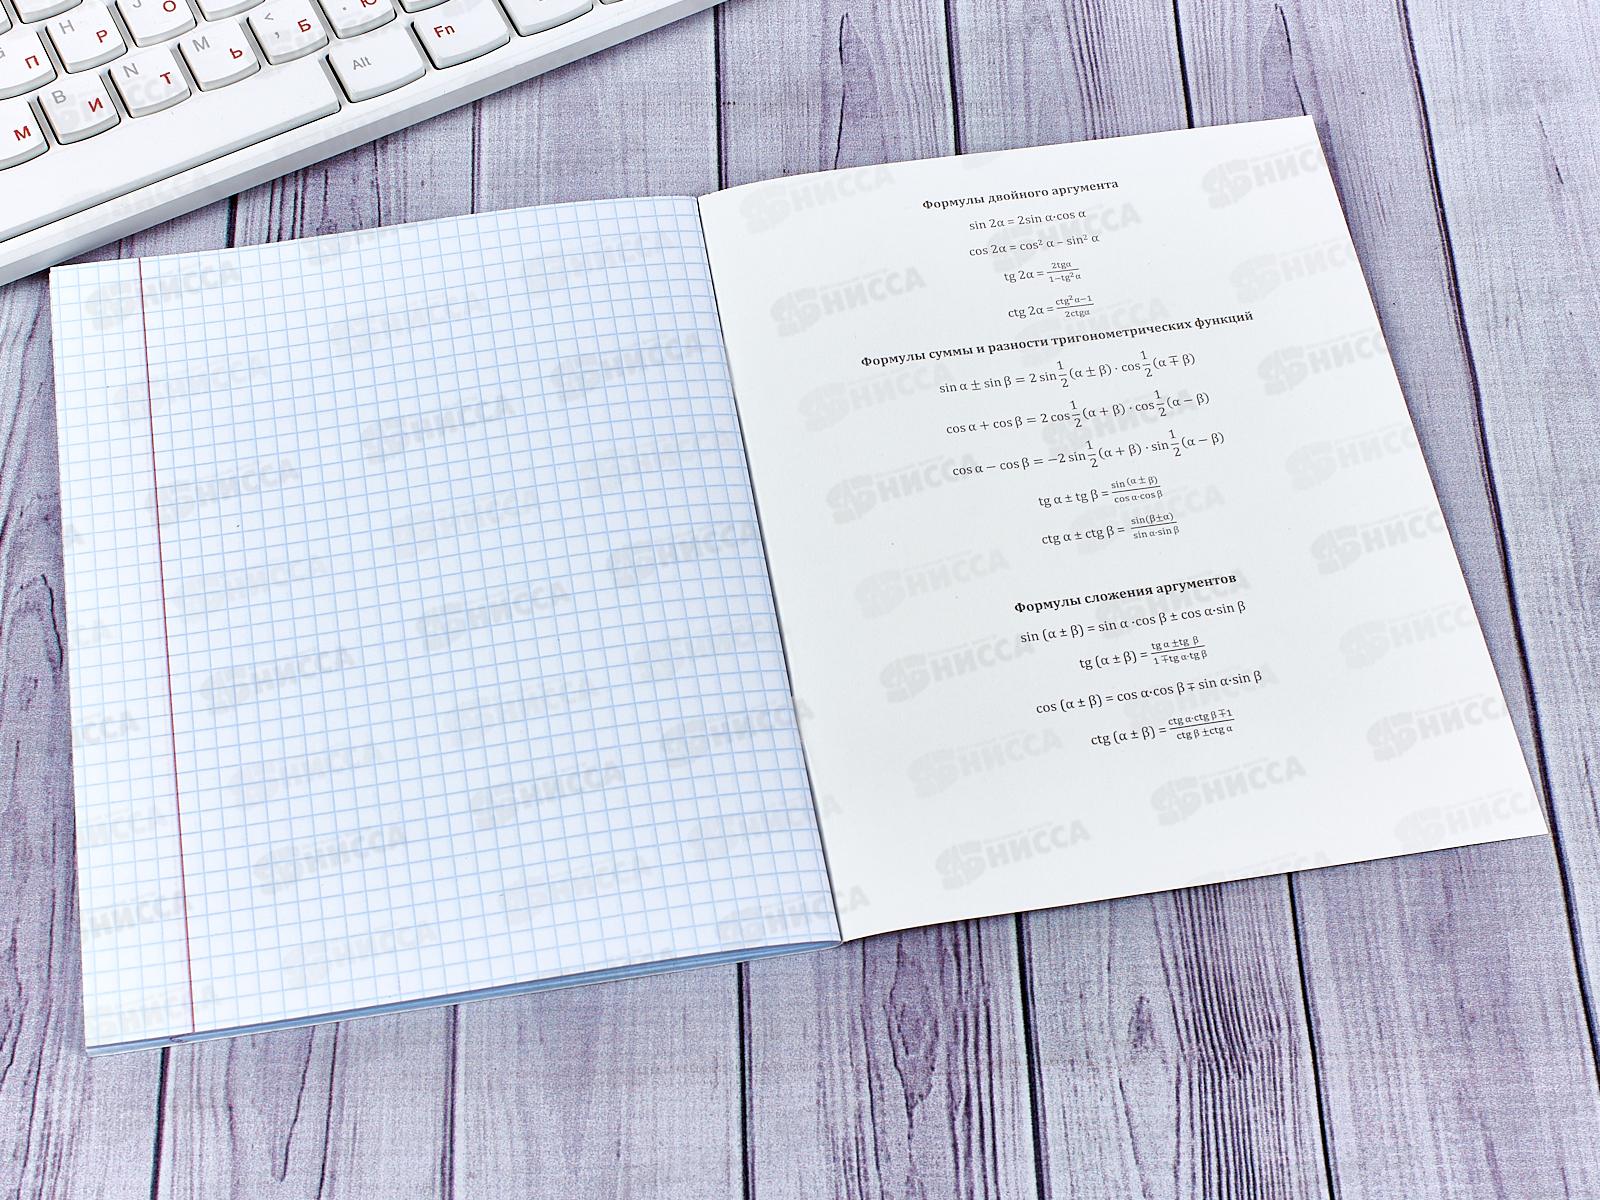 П
Н Р
J О
< Б
Ю
М Ь
N Т
В И
М
Alt
Fn
Формулы двойного аргумента
sin 2α = 2sin α·cos α
cos 2α = cos² α − sin² α
tg 2α = 2tgα / 1−tg²α
ctg 2α = ctg²α−1 / 2ctgα
Формулы суммы и разности тригонометрических функций
sin α ± sin β = 2 sin 1/2 (α ± β) · cos 1/2 (α ∓ β)
cos α + cos β = 2 cos 1/2 (α + β) · cos 1/2 (α − β)
cos α − cos β = −2 sin 1/2 (α + β) · sin 1/2 (α − β)
tg α ± tg β = sin (α ± β) / cos α·cos β
ctg α ± ctg β = sin(β±α) / sin α·sin β
Формулы сложения аргументов
sin (α ± β) = sin α ·cos β ± cos α·sin β
tg (α ± β) = tg α ±tg β / 1 ∓tg α·tg β
cos (α ± β) = cos α·cos β ∓ sin α·sin β
ctg (α ± β) = ctg α·ctg β ∓1 / ctg β ±ctg α
НИССА